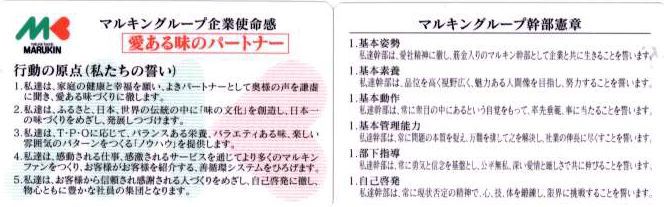 YOUR TASTE
MARUKIN
マルキングループ企業使命感
愛ある味のパートナー
行動の原点(私たちの誓い)
1.私達は、家庭の健康と幸福を願い、よきパートナーとして奥様の声を謙虚
に聞き、愛ある味づくりに徹します。
2.私達は、ふるさと、日本、世界の伝統の中に「味の文化」を創造し、日本一
の味づくりをめざし、発展しつづけます。
3.私達は、T・P・Oに応じて、バランスある栄養、バラエティある味、楽しい
雰囲気のパターンをつくる「ノウハウ」を提供します。
4.私達は、感動される仕事、感激されるサービスを通じてより多くのマルキン
ファンをつくり、お客様がお客様を紹介する、善循環システムをひろげます。
5.私達は、お客様から信頼され感謝される人づくりをめざし、自己啓発に徹し、
物心ともに豊かな社員の集団となります。
マルキングループ幹部憲章
1.基本姿勢
私達幹部は、愛社精神に徹し、筋金入りのマルキン幹部として企業と共に生きることを誓います。
1.基本素養
私達幹部は、品位を高く視野広く、魅力ある人間像を目指し、努力することを誓います。
1.基本動作
私達幹部は、常に衆目の中にあるという自覚をもって、率先垂範、事に当たることを誓います。
1.基本管理能力
私達幹部は、常に問題の本質を捉え、万難を排して之を解決し、社業の伸長に尽くすことを誓います。
1.部下指導
私達幹部は、常に勇気と信念を基盤とし、公平無私、深い愛情と厳しさで共に伸びることを誓います。
1.自己啓発
私達幹部は、常に現状否定の精神で、心、技、体を鍛錬し、限界に挑戦することを誓います。